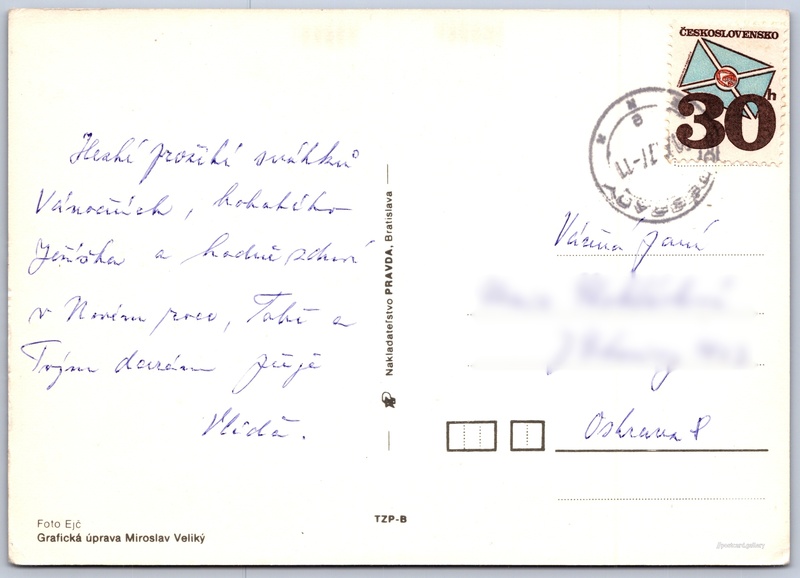 ČESKOSLOVENSKO
30 h
Hezké prožití svátků
Vánočních, bohatého
Ježíška a hodně zdraví
v Novém roce, Tobě a
Tvým
přeje
Vážená paní
Ostrava 8
Nakladatelstvo PRAVDA, Bratislava
TZP-B
Foto Ejč
Grafická úprava Miroslav Veliký